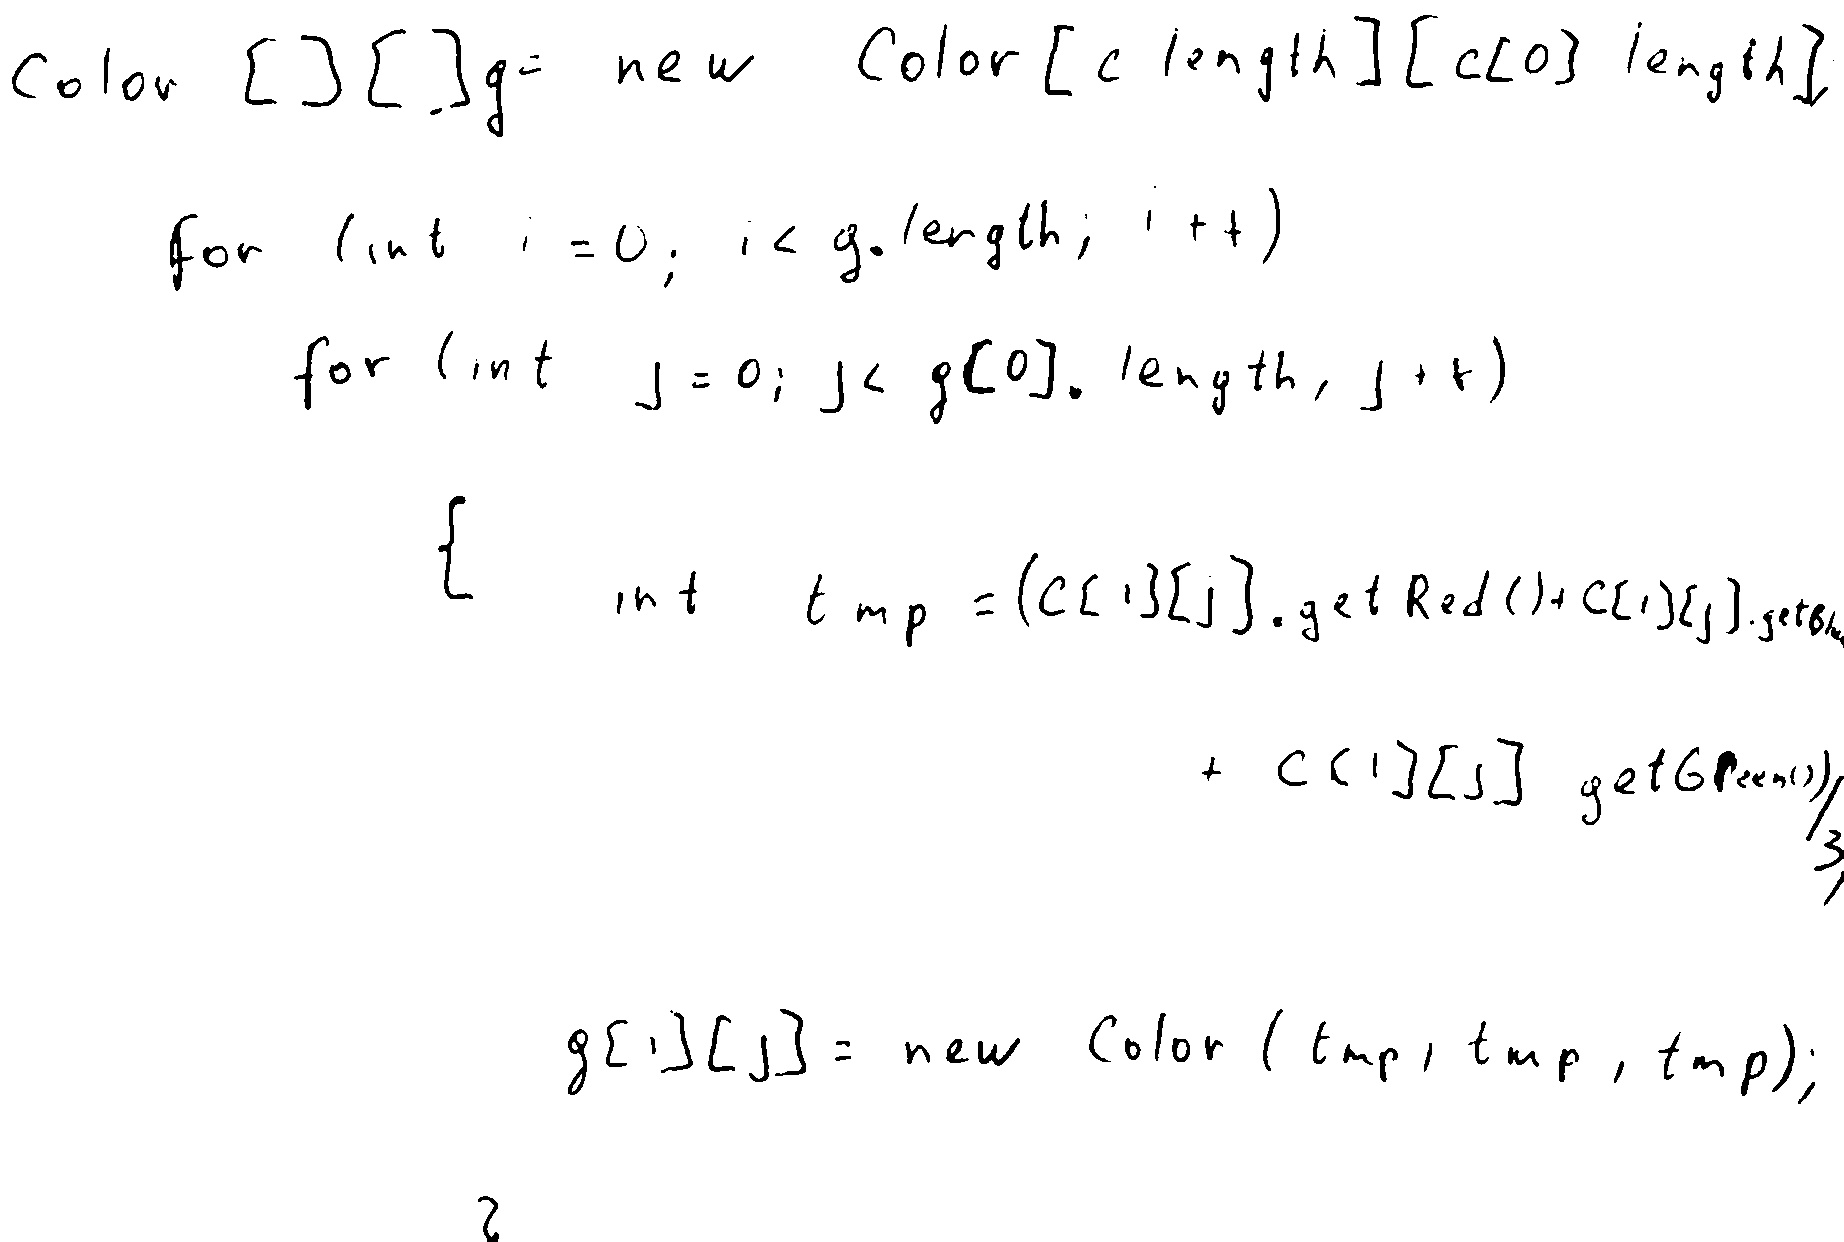 Color [][]g= new Color[c length][c[0] length];
for (int i=0; i< g.length; i++)
for (int j=0; j< g[0].length, j++)
{ int tmp =(C[i][j].getRed()+C[i][j].getBlue
+ C[i][j] getGreen())/3;
g[i][j]= new Color(tmp, tmp, tmp);
}